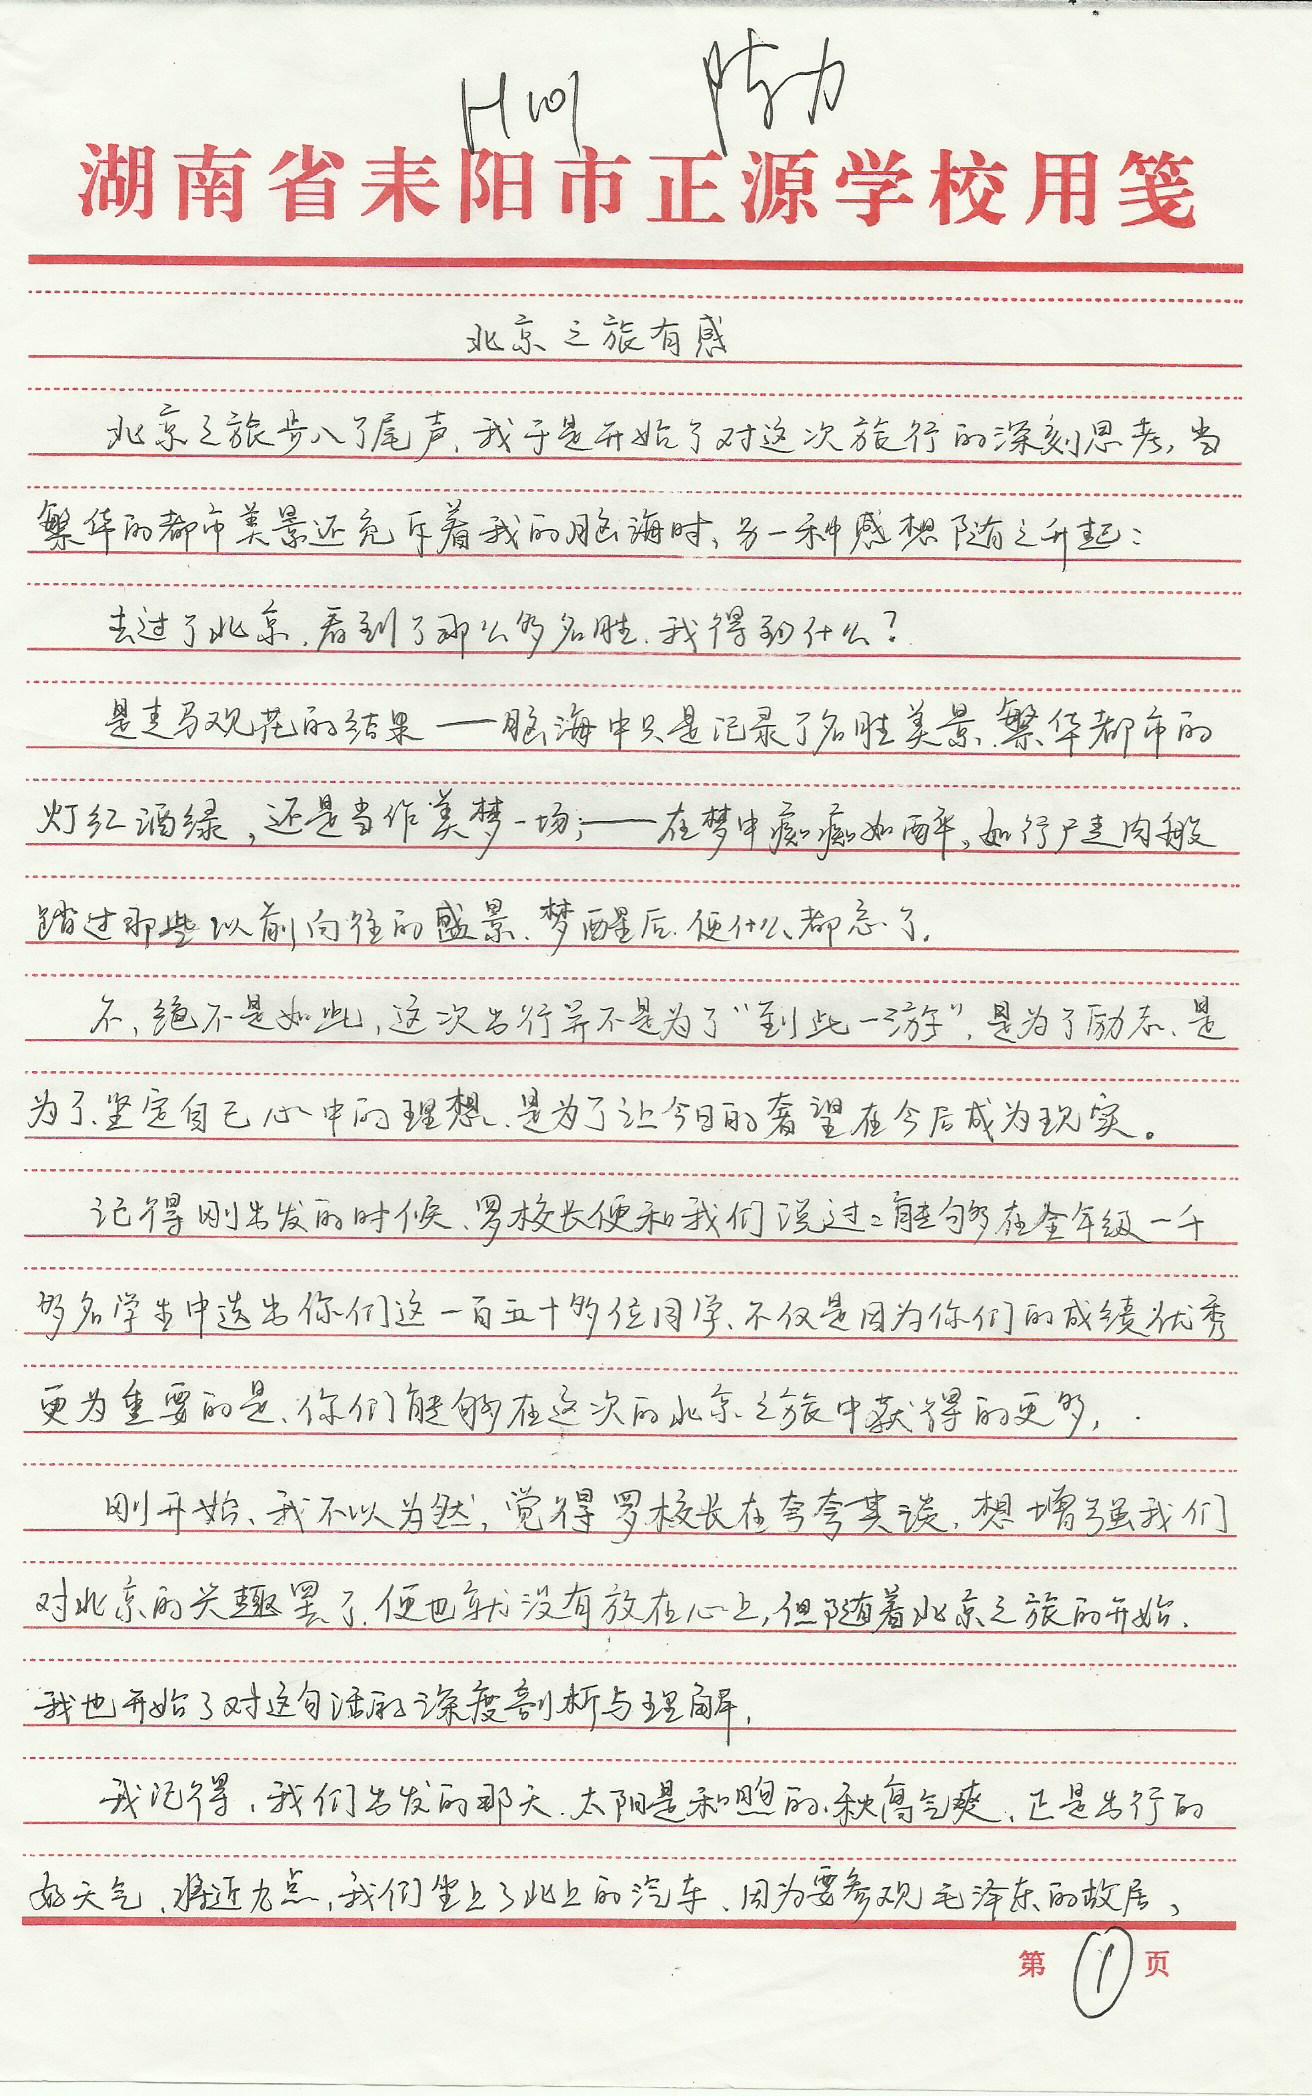 H101 陈力
湖南省耒阳市正源学校用笺
北京之旅有感
北京之旅步入了尾声、我于是开始了对这次旅行的深刻思考,当
繁华的都市美景还充斥着我的脑海时、另一种感想随之升起:
去过了北京、看到了那么多名胜、我得到什么?
是走马观花的结果——脑海中只是记录了名胜美景、繁华都市的
灯红酒绿,还是当作美梦一场;——在梦中痴痴如醉。如行尸走肉般
踏过那些以前向往的盛景、梦醒后、便什么都忘了。
不,绝不是如此,这次出行并不是为了“到此一游”,是为了励志、是
为了坚定自己心中的理想、是为了让今日的奢望在今后成为现实。
记得刚出发的时候、罗校长便和我们说过:能够在全年级一千
多名学生中选出你们这一百五十多位同学、不仅是因为你们的成绩优秀
更为重要的是、你们能够在这次的北京之旅中获得的更多,
刚开始、我不以为然,觉得罗校长在夸夸其谈,想增强我们
对北京的兴趣罢了、便也就没有放在心上,但随着北京之旅的开始、
我也开始了对这句话的深度剖析与理解,
我记得,我们出发的那天、太阳是和煦的、秋高气爽、正是出行的
好天气、将近九点,我们坐上了北上的汽车、因为要参观毛泽东的故居、
第 1 页